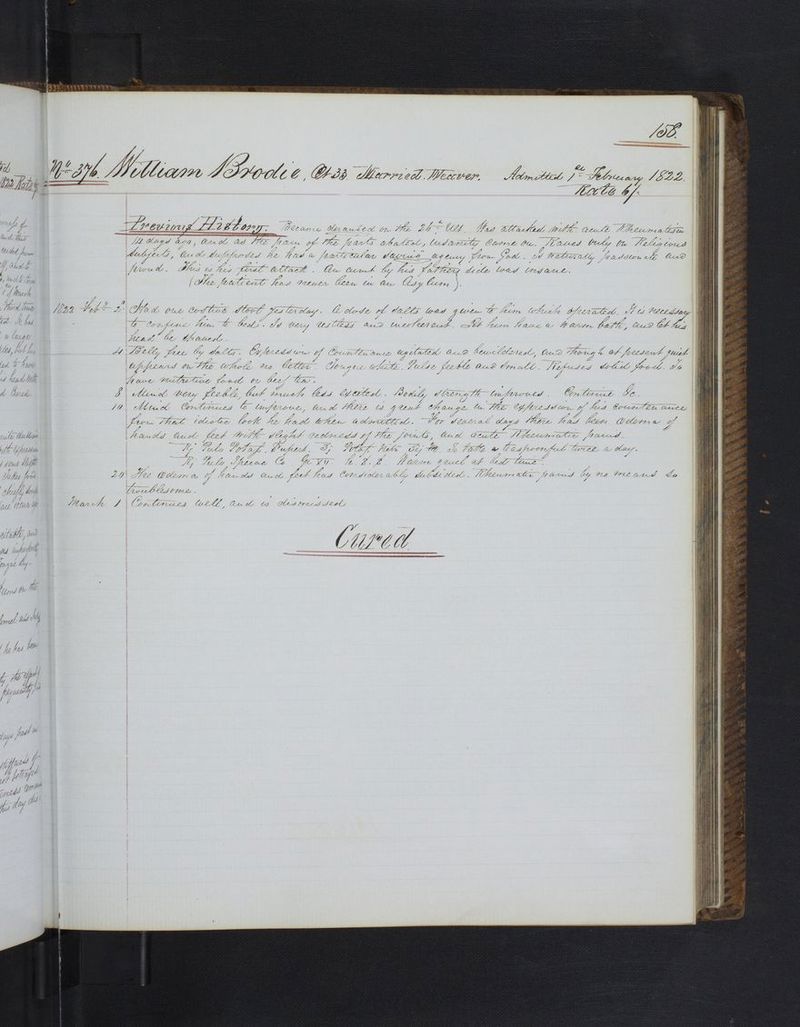 158.
No. 376. William Brodie, Æt 33 Married. Weaver. Admitted 1st February 1822
Rate 6/-
Previous History. Became deranged on the 26th Ult. Was attacked with acute Rheumatism
12 days ago, and as the pain of the parts abated, insanity came on. Raves only on Religious
subjects, and supposes he has a particular saving agency from God. Is naturally passionate and
proud. This is his first attack. An aunt by his father's side was insane.
(The patient has never been in an Asylum).
1822 Feby 2 Had one costive stool yesterday. A dose of salts was given to him which operated. It is necessary
to confine him to bed. Is very restless and incoherent. Let him have a warm bath, and let his
head be shaved.
4 Belly free by salts. Expression of Countenance agitated and bewildered, and though at present quiet
appears on the whole no better. Tongue white. Pulse feeble and small. Refuses solid food. To
have nutritive food or beef tea.
8 Mind very feeble, but much less excited. Bodily strength improves. Continue &c.
10 Mind continues to improve, and there is great change in the expression of his countenance
from that idiotic look he had when admitted. For several days there has been œdema of
hands and feet with slight redness of the joints, and acute Rheumatic pains.
Pulv Potass. Supert. Potass Nitr To take a teaspoonful twice a day.
Pulv Ipecac Co Gr h. s. s Warm gruel at bed time.
24 The œdema of hands and feet has considerably subsided. Rheumatic pains by no means so
troublesome.
March 1 Continues well, and is dismissed
Cured